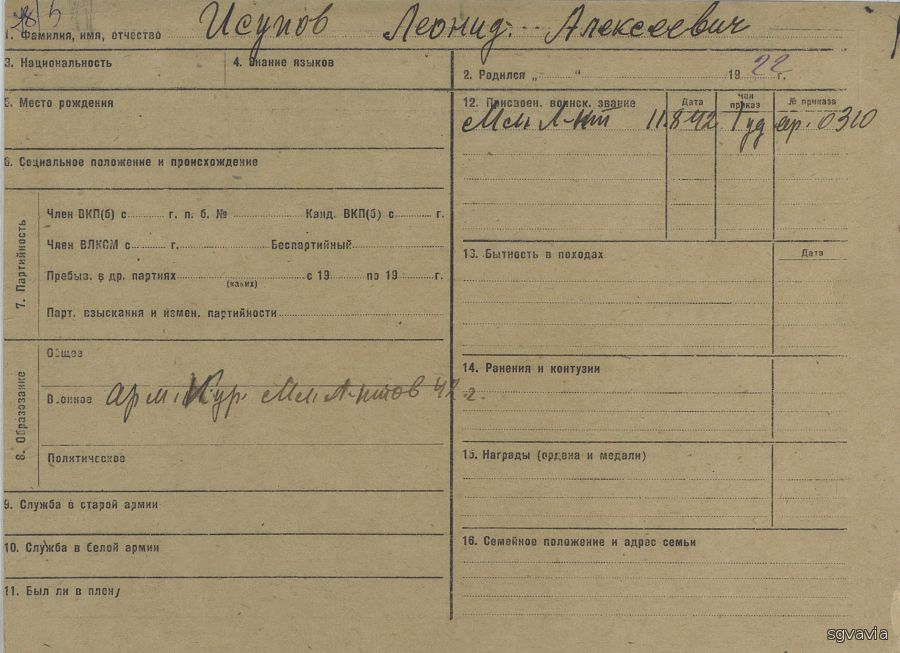 28/5
1. Фамилия, имя, отчество Исупов Леонид Алексеевич
3. Национальность
4. Знание языков
2. Родился „ “ 1922 г.
5. Место рождения
6. Социальное положение и происхождение
7. Партийность
Член ВКП(б) с г. п. б. № Канд. ВКП(б) с г.
Член ВЛКСМ с г. Беспартийный
Пребыз. в др. партиях с 19 по 19 г.
(каких)
Парт. взыскания и измен. партийности
8. Образование
Общее
Военное арм. Кур. Мл. Л-нтов 42 г.
Политическое
9. Служба в старой армии
10. Служба в белой армии
11. Был ли в плену
12. Присвоен. воинск. звание Дата Чей приказ № приказа
Мл. Л-нт 11.8.42 ар. 0310
13. Бытность в походах Дата
14. Ранения и контузии
15. Награды (ордена и медали)
16. Семейное положение и адрес семьи
sgvavia